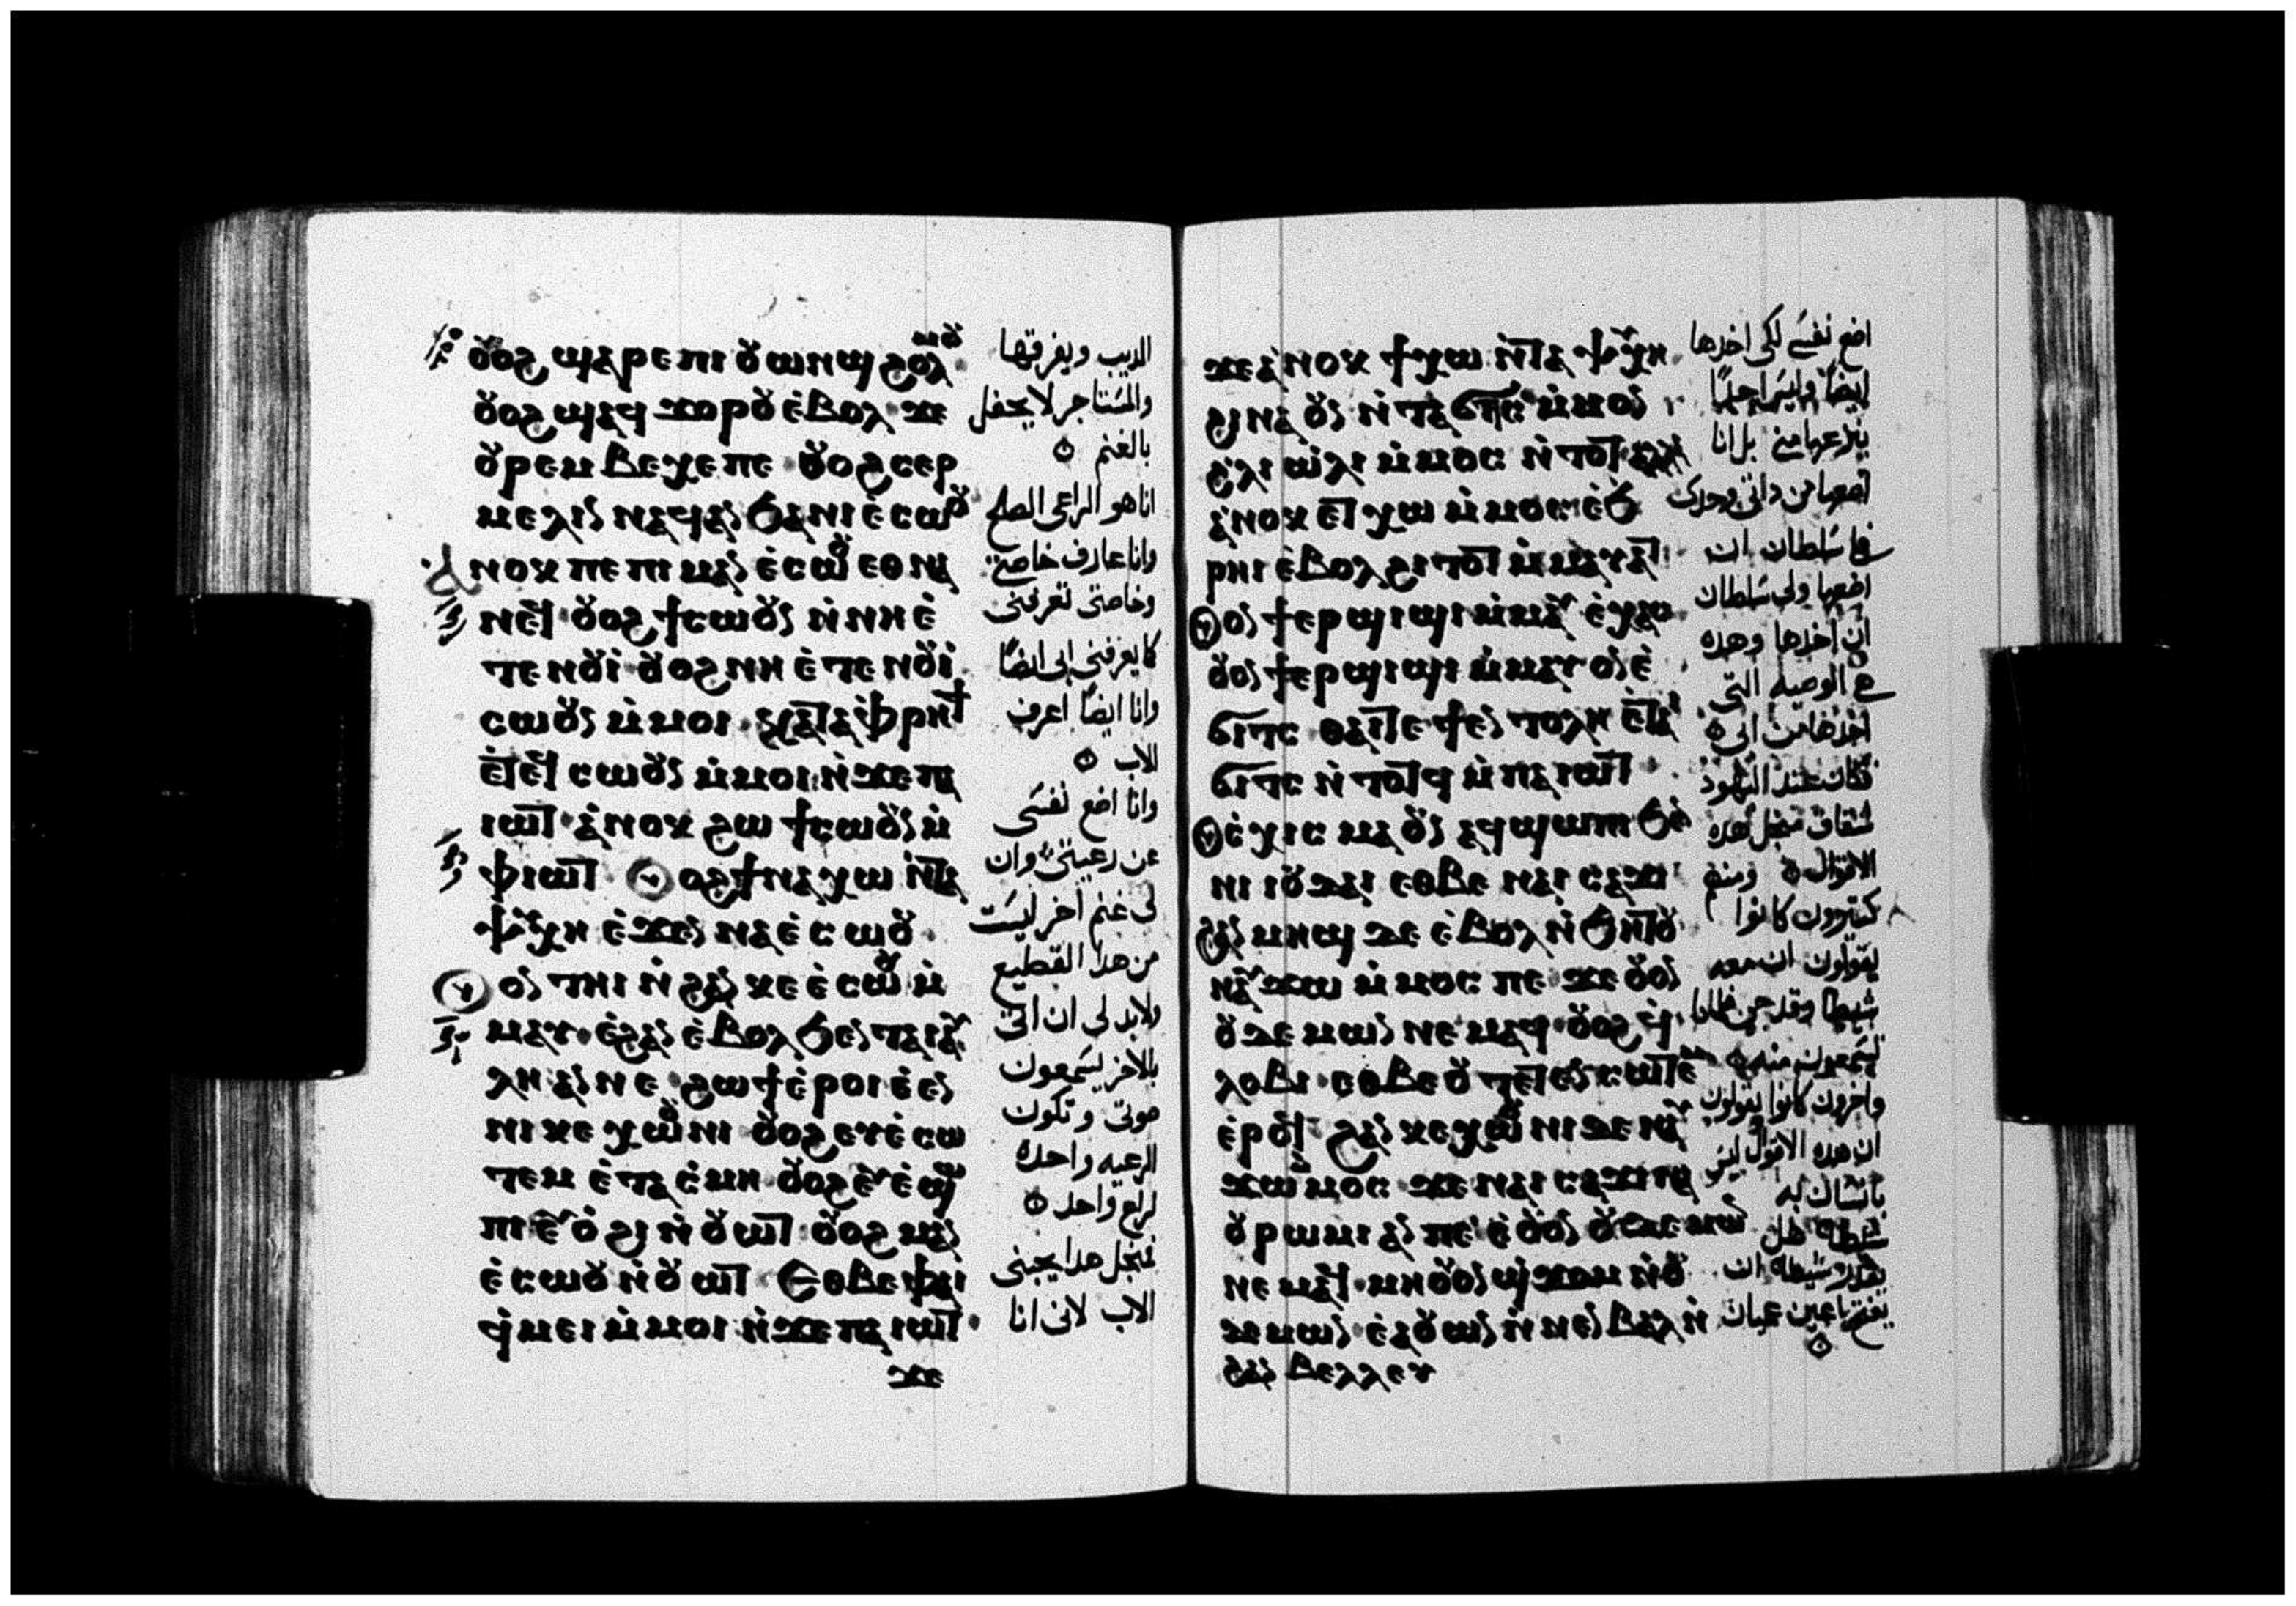 ⲟⲩⲟϩ ϣⲁⲣⲉ ⲡⲓⲟⲩⲱⲛϣ ϩⲟⲗⲙⲟⲩ
ⲟⲩⲟϩ ϣⲁϥ ϫⲟⲣⲟⲩ ⲉ̇ⲃⲟⲗ ϫⲉ
ⲟⲩⲣⲉⲙ ⲃⲉⲭⲉ ⲡⲉ ⲟⲩⲟϩ ⲥⲉⲣ
ⲙⲉⲗⲓⲛ ⲛⲁϥⲁⲛ ϧⲁ ⲛⲓⲉ̇ⲥⲱⲟⲩ
ⲁⲛⲟⲕ ⲡⲉ ⲡⲓⲙⲁⲛ ⲉ̇ⲥⲱⲟⲩ ⲉⲑⲛⲁ
ⲛⲉϥ ⲟⲩⲟϩ ϯⲥⲱⲟⲩⲛ ⲛ̇ⲛⲏ ⲉ̇
ⲧⲉ ⲛⲟⲩⲓ̇ ⲟⲩⲟϩ ⲛⲏ ⲉ̇ⲧⲉ ⲛⲟⲩⲓ̇
ⲥⲱⲟⲩⲛ ⲙ̇ⲙⲟⲓ ⲕⲁⲧⲁ ⲫ̇ⲣⲏϯ
ⲉ̇ⲧⲉϥ ⲥⲱⲟⲩⲛ ⲙ̇ⲙⲟⲓ ⲛ̇ϫⲉ ⲡⲁ
ⲓⲱⲧ ⲁ̇ⲛⲟⲕ ϩⲱ ϯⲥⲱⲟⲩⲛ ⲙ̇
ⲫⲓⲱⲧ ⲟⲩⲟϩ ϯⲛⲁⲭⲱ ⲛ̇ⲧⲁ
ⲯⲩⲭⲏ ⲉ̇ϫⲉⲛ ⲛⲁⲉ̇ⲥⲱⲟⲩ
ⲟⲩⲟⲛ ⲧⲏⲓ ⲛ̇ϩⲁⲛ ⲕⲉ ⲉ̇ⲥⲱⲟⲩ ⲙ̇
ⲙⲁⲩ ⲉ̇ϩⲁⲛ ⲉ̇ⲃⲟⲗ ϧⲉⲛ ⲧⲁⲓⲁⲩ
ⲗⲏ ⲁⲛ ⲛⲉ ϩⲱϯ ⲉ̇ⲣⲟⲓ ⲉ̇ⲉⲛ
ⲛⲓ ⲕⲉ ⲭⲱⲟⲩⲛⲓ ⲟⲩⲟϩ ⲉⲩⲉ̇ⲥⲱ
ⲧⲉⲙ ⲉ̇ⲧⲁⲥ̇ⲙⲏ ⲟⲩⲟϩ ⲉⲩⲉ̇ϣⲱ
ⲡⲓ ⲉⲩⲟ̇ϩⲓ ⲛ̇ⲟⲩⲱⲧ ⲟⲩⲟϩ ⲙⲁⲛ
ⲉ̇ⲥⲱⲟⲩ ⲛ̇ⲟⲩⲱⲧ ⲉⲑⲃⲉ ⲫⲁⲓ
ϥ̇ⲙⲉⲓ ⲙ̇ⲙⲟⲓ ⲛ̇ϫⲉ ⲡⲁⲓⲱⲧ
ϫⲉ
الديب ويفرقها
والمستاجر لا يحفل
بالغنم
انا هو الراعى الصالح
وانا عارف خاصتى
وخاصتى تعرفنى
كما يعرفنى ابى ايضًا
وانا ايضًا اعرف
الاب
وانا اضع نفسى
عن رعيتى وان
لى غنم اخر ليست
من هدا القطيع
ولابد لى ان اتى
بالاخر يسمعون
صوتى وتكون
الرعيه واحده
لراع واحد
فمنجل هدا يحبنى
الاب لانى انا
ϫⲉ ⲁ̇ⲛⲟⲕ ϯⲭⲱ ⲛ̇ⲧⲁ ⲯⲩⲭⲏ
ϩⲓⲛⲁ ⲟⲩⲛ ⲛ̇ⲧⲁϭⲓⲧⲥ ⲙ̇ⲙⲟⲛ
ϩ̇ⲗⲓ ⲱ̇ⲗⲓ ⲙ̇ⲙⲟⲥ ⲛ̇ⲧⲟⲧ ⲁⲗⲗⲁ
ⲁ̇ⲛⲟⲕ ⲉⲧⲭⲱ ⲙ̇ⲙⲟⲥ ⲉ̇ϧ
ⲣⲏⲓ ⲉ̇ⲃⲟⲗ ϩⲓⲧⲟⲧ ⲙ̇ⲙⲁⲩⲁⲧ
ⲟⲩⲟⲛ ϯⲉⲣϣⲓϣⲓ ⲙ̇ⲙⲁⲩ ⲉ̇ⲭⲁⲥ
ⲟⲩⲟⲛ ϯⲉⲣϣⲓϣⲓ ⲙ̇ⲙⲁⲩ ⲟⲛ ⲉ̇
ϭⲓⲧⲥ ⲑⲁⲓ ⲧⲉ ϯⲉⲛⲧⲟⲗⲏ ⲉ̇ⲧⲁⲓ
ϭⲓⲧⲥ ⲛ̇ⲧⲟⲧϥ ⲙ̇ⲡⲁⲓⲱⲧ
ⲟⲩⲥ̇ⲭⲓⲥⲙⲁ ⲟⲩⲛ ⲁϥϣⲱⲡⲓ ϧⲉⲛ
ⲛⲓⲓⲟⲩⲇⲁⲓ ⲉⲑⲃⲉ ⲛⲁⲓ ⲥⲁϫⲓ
ϩⲁⲛ ⲙⲏϣ ⲇⲉ ⲉ̇ⲃⲟⲗ ⲛ̇ϧⲏⲧⲟⲩ
ⲛⲁⲩϫⲱ ⲙ̇ⲙⲟⲥ ⲡⲉ ϫⲉ ⲟⲩⲟⲛ
ⲟⲩⲇⲉⲙⲱⲛ ⲛⲉⲙⲁϥ ⲟⲩⲟϩ ϥ̇
ⲗⲟⲃⲓ ⲉⲑⲃⲉ ⲟⲩ ⲧⲉⲧⲉⲛⲥⲱⲧⲉⲙ
ⲉ̇ⲣⲟϥ ϩⲁⲛ ⲕⲉⲭⲱⲟⲩⲛⲓ ⲇⲉ ⲛⲁⲩ
ϫⲱ ⲙ̇ⲙⲟⲥ ϫⲉ ⲛⲁⲓ ⲥⲁϫⲓ ⲛⲁ
ⲟⲩⲣⲱⲙⲓ ⲁⲛ ⲡⲉ ⲉ̇ⲟⲩⲟⲛ ⲟⲩⲇⲉⲙⲱⲛ
ⲛⲉⲙⲁϥ ⲙⲏ ⲟⲩⲟⲛ ϣ̇ϫⲟⲙ ⲛ̇ⲟⲩ
ⲇⲉⲙⲱⲛ ⲉ̇ⲁⲟⲩⲱⲛ ⲛ̇ⲛⲉⲛⲃⲁⲗ ⲛ̇
ϩⲁⲛ ⲃⲉⲗⲗⲉⲩ
اضع نفسى لكى اخدها
ايضًا وليس احدًا
ينزعها منى بل انا
اضعها من داتى وحدى
فلى سلطان ان
اضعها ولى سلطان
ان اخدها وهده
هى الوصيه التى
اخدتها من ابى
فكان عند اليهود
شقاق منجل هده
الاقوال ومنهم
كتيرون كانوا
يقولون ان معه
شيطان وقد جن فلمادا
تسمعون منه
واخرون كانوا يقولون
ان هده الاقوال ليس
بانسان به
شيطان هل
يقدر شيطان ان
يفتح اعين عميان